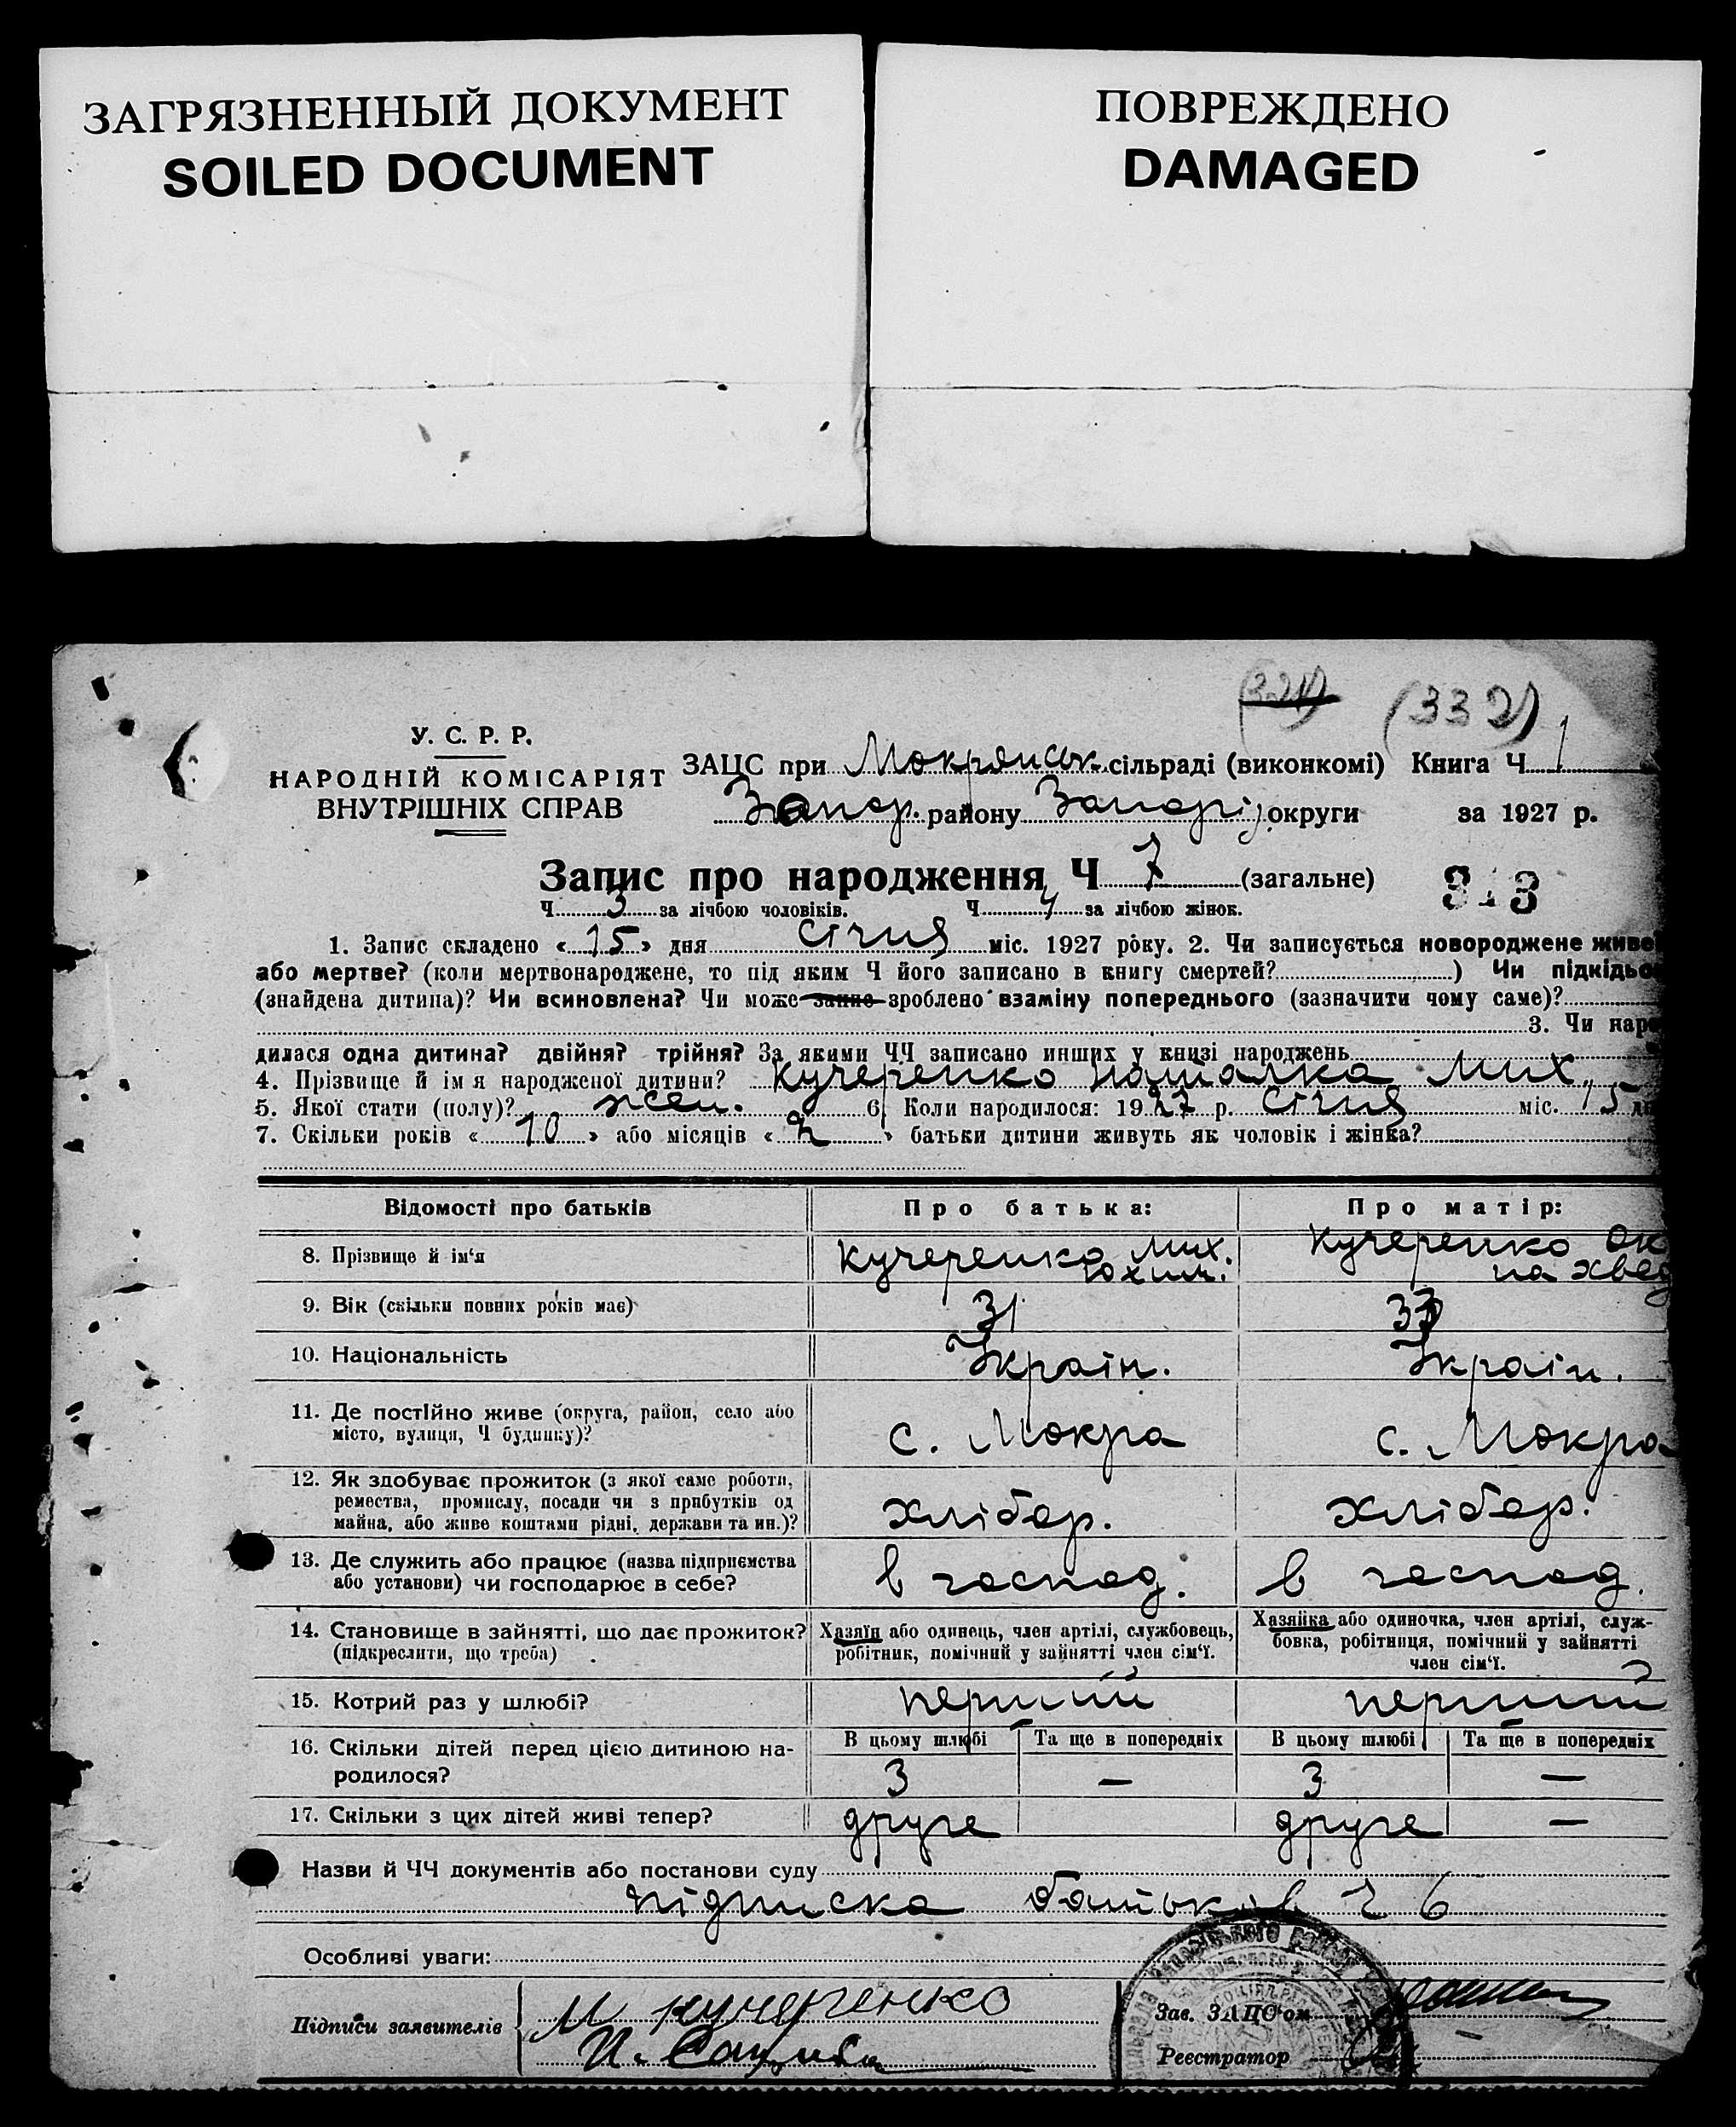 ЗАГРЯЗНЕННЫЙ ДОКУМЕНТ
SOILED DOCUMENT
ПОВРЕЖДЕНО
DAMAGED
(321) (332)
У. С. Р. Р.
НАРОДНІЙ КОМІСАРІЯТ
ВНУТРІШНІХ СПРАВ
ЗАЦС при Мокрянськ. сільраді (виконкомі) Книга Ч 1
Запор. району Запоріз. округи за 1927 р.
Запис про народження Ч 7 (загальне)
Ч 3 за лічбою чоловіків. Ч 4 за лічбою жінок.
1. Запис складено « 15 » дня січня міс. 1927 року. 2. Чи записується новороджене живе
або мертве? (коли мертвонароджене, то під яким Ч його записано в книгу смертей? ) Чи підкідьо
(знайдена дитина)? Чи всиновлена? Чи може зроблено взаміну попереднього (зазначити чому саме)?
3. Чи наро
дилася одна дитина? двійня? трійня? За якими ЧЧ записано инших у книзі народжень
4. Прізвище й імя народженої дитини? Кучеренко Наталка Мих.
5. Якої стати (полу)? жен. 6. Коли народилося: 1927 р. січня міс. 15 дн
7. Скільки років « 10 » або місяців « 2 » батьки дитини живуть як чоловік і жінка?
Відомості про батьків Про батька: Про матір:
8. Прізвище й ім'я Кучеренко Мих. Юхим. Кучеренко Ок на Хвед
9. Вік (скільки повних років має) 31 33
10. Національність Україн. Україн.
11. Де постійно живе (округа, район, село або
місто, вулиця, Ч будинку)? с. Мокра с. Мокра
12. Як здобуває прожиток (з якої саме роботи,
ремества, промислу, посади чи з прибутків од
майна, або живе коштами рідні, держави та ин.)? хлібор. хлібор.
13. Де служить або працює (назва підприємства
або установи) чи господарює в себе? в господ. в господ.
14. Становище в зайнятті, що дає прожиток?
(підкреслити, що треба)
Хазяїн або одинець, член артілі, службовець,
робітник, помічний у зайнятті член сім'ї.
Хазяйка або одиночка, член артілі, служ-
бовка, робітниця, помічний у зайнятті
член сім'ї.
15. Котрий раз у шлюбі? перший перший
16. Скільки дітей перед цією дитиною на-
родилося?
В цьому шлюбі Та ще в попередніх В цьому шлюбі Та ще в попередніх
3 — 3 —
17. Скільки з цих дітей живі тепер? друге друге —
Назви й ЧЧ документів або постанови суду
підписка батьків Ч 6
Особливі уваги:
Підписи заявителів М Кучеренко
Зав. ЗАЦС'ом
Реєстратор